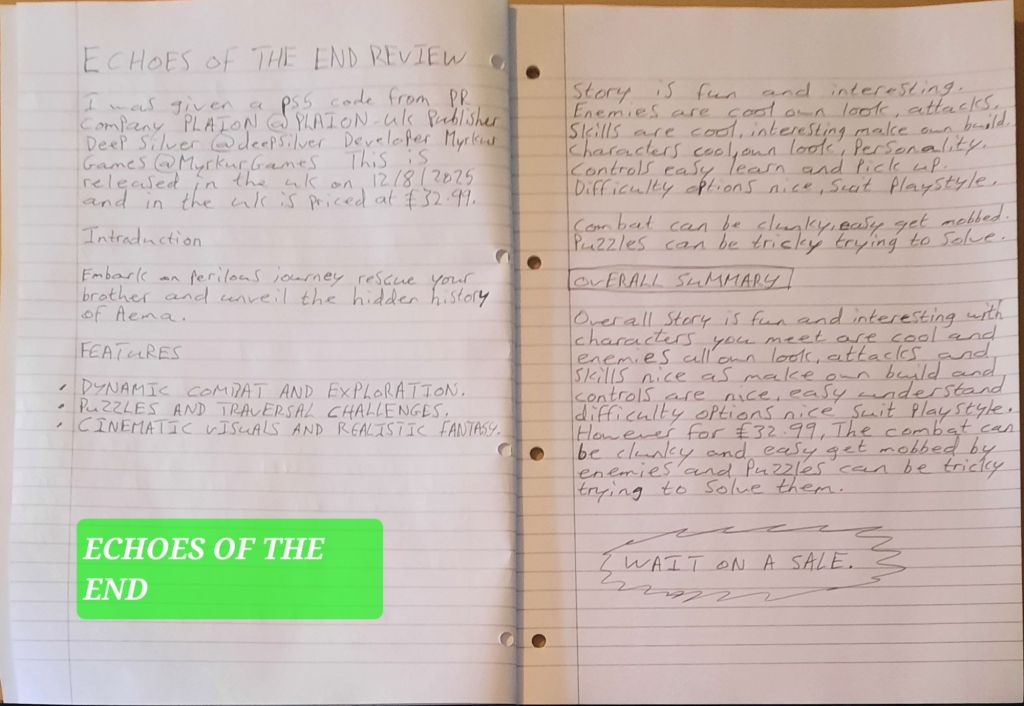 ECHOES OF THE END REVIEW
I was given a PS5 code from PR
Company PLAION @PLAION-uk Publisher
Deep Silver @deepsilver Developer Myrkur
Games @MyrkurGames This is
released in the uk on 12/8/2025
and in the uk is priced at £32.99.
Introduction
Embark on perilous journey rescue your
brother and unveil the hidden history
of Aema.
FEATURES
DYNAMIC COMBAT AND EXPLORATION.
PUZZLES AND TRAVERSAL CHALLENGES.
CINEMATIC VISUALS AND REALISTIC FANTASY.
ECHOES OF THE
END
Story is fun and interesting.
Enemies are cool own look, attacks.
Skills are cool, interesting make own build.
Characters cool, own look, Personality.
Controls easy learn and Pick up.
Difficulty options nice, suit Playstyle.
Combat can be clunky, easy get mobbed.
Puzzles can be tricky trying to solve.
OVERALL SUMMARY
Overall Story is fun and interesting with
characters you meet are cool and
enemies all own look, attacks and
skills nice as make own build and
controls are nice, easy understand
difficulty options nice suit Playstyle.
However for £32.99, The combat can
be clunky and easy get mobbed by
enemies and Puzzles can be tricky
trying to Solve them.
WAIT ON A SALE.